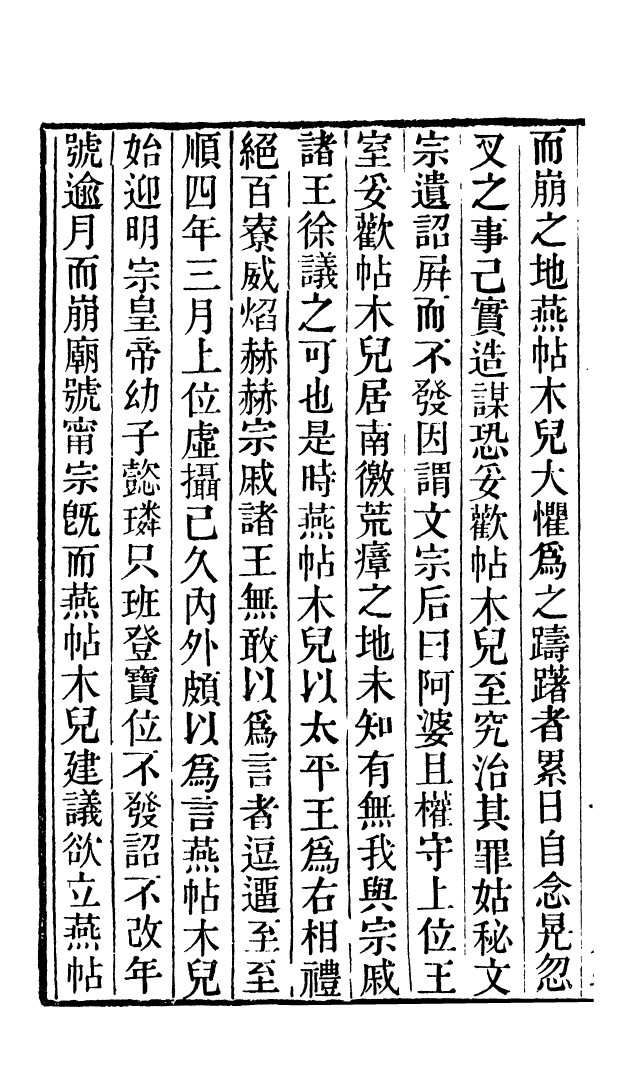 而崩之地燕帖木兒大懼爲之躊躇者累日自念晃忽
叉之事己實造謀恐妥歡帖木兒至究治其罪姑秘文
宗遺詔屛而不發因謂文宗后曰阿婆且權守上位王
室妥歡帖木兒居南徼荒瘴之地未知有無我與宗戚
諸王徐議之可也是時燕帖木兒以太平王爲右相禮
絕百寮威焰赫赫宗戚諸王無敢以爲言者逗遛至至
順四年三月上位虛攝已久內外頗以爲言燕帖木兒
始迎明宗皇帝幼子懿璘只班登寶位不發詔不改年
號逾月而崩廟號甯宗旣而燕帖木兒建議欲立燕帖